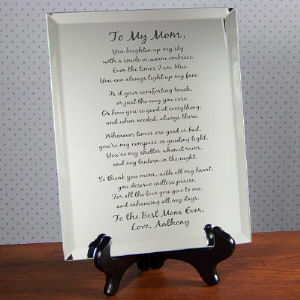 To My Mom,
You brighten up my sky
with a smile or warm embrace.
Even the times I am blue
You can always light up my face.
Is it your comforting touch,
or just the way you care
Or how you're good at everything,
and when needed, always there.
Whenever times are good or bad,
you're my compass, or guiding light,
You're my shelter when it rains,
and my lantern in the night.
So thank you mom, with all my heart,
you deserve endless praise,
For all the love you give to me,
and enhancing all my days.
To the Best Mom Ever,
Love, Anthony